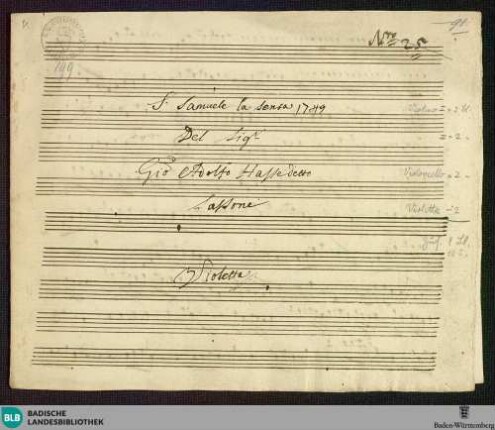 Nro 25
91.
199
S. Samuele la Sensa 1749
Del Sigr
Gio Adolfo Hasse detto
Sassone
Violetta
Violino I = 2 St.
II = 2 "
Violoncello = 2 "
Violetta = 2
BLB BADISCHE
LANDESBIBLIOTHEK
Baden-Württemberg